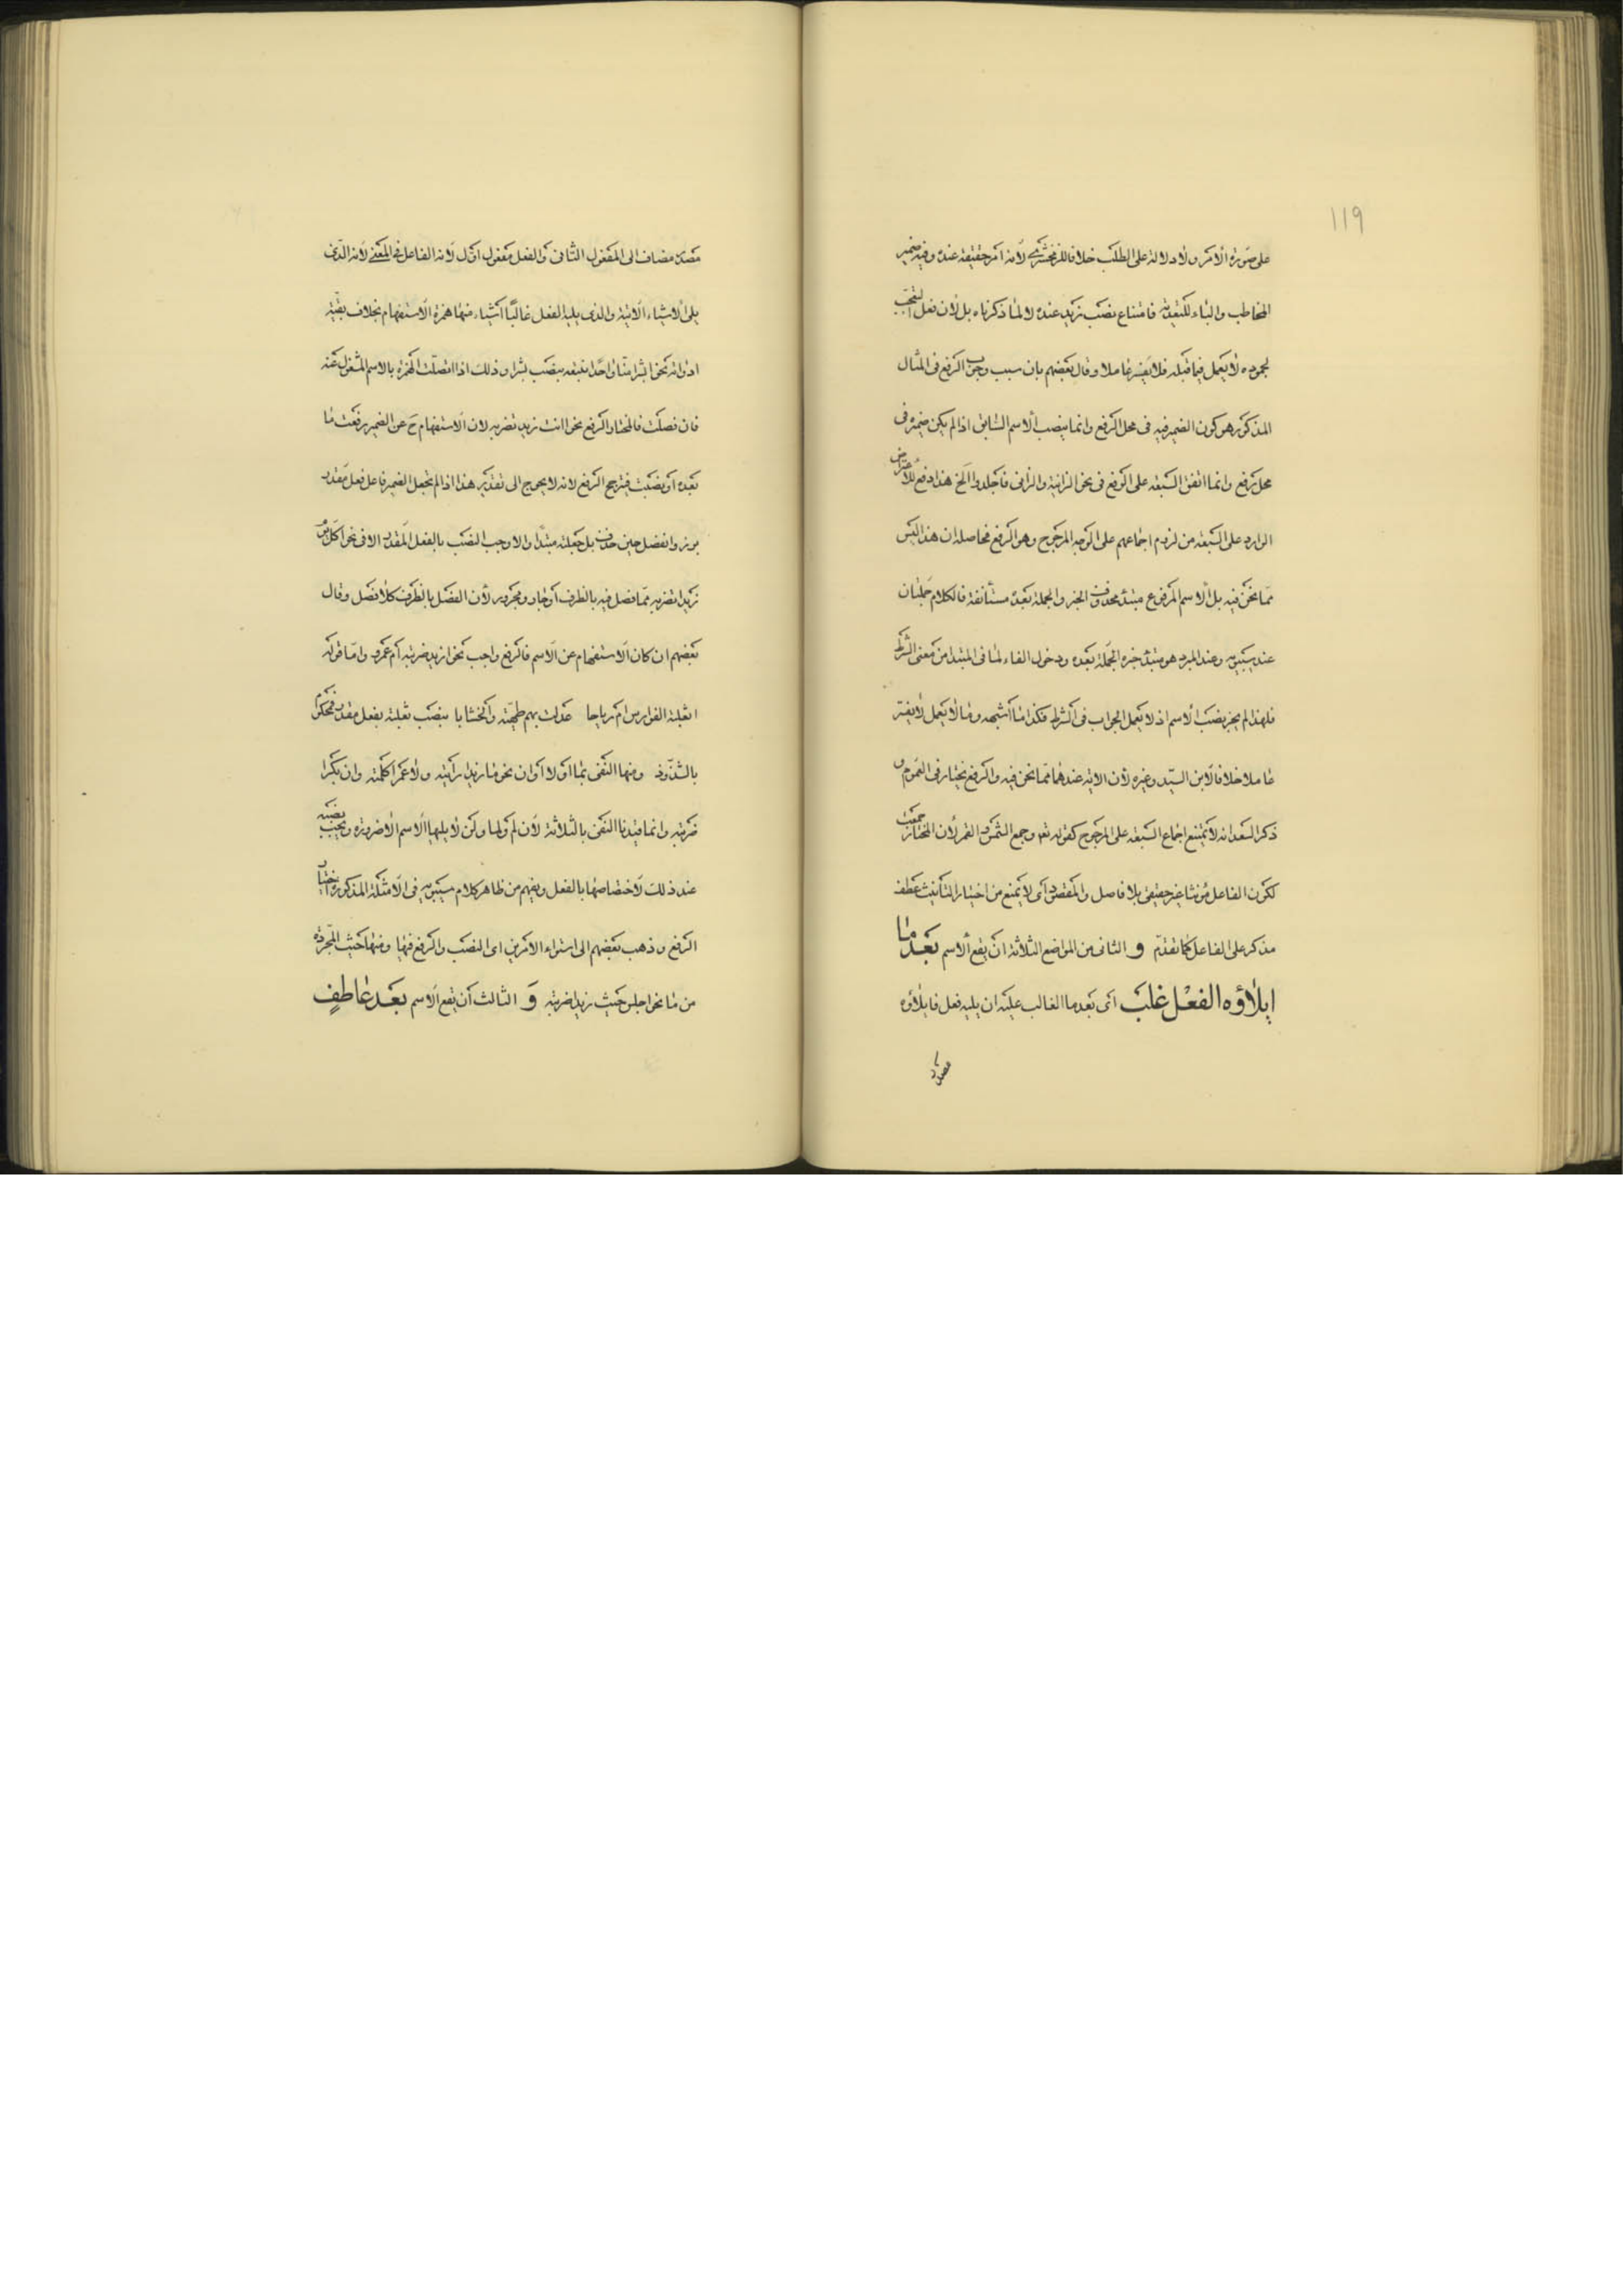 ١١٩
على صورة الامر ولا دلالة على الطلب خلافا للزمخشرى لانه امر حقيقة عنده وفيه ضمير
المخاطب والباء للتعدية فامتناع نصب زيد عنده لا لما ذكرناه بل لان فعل التعجب
لجموده لا يعمل فيما قبله فلا يفسر عاملا وقال بعضهم بان سبب وجوب الرفع فى المثال
المذكور هو كون الضمير فيه فى محل الرفع وانما ينصب الاسم السابق اذا لم يكن ضميره فى
محل رفع وانما اتفق السبعة على الرفع فى نحو الزانية والزانى فاجلدوا الخ هذا دفع للاعتراض
الوارد على السبعة من لزوم اجماعهم على الوجه المرجوح وهو الرفع فحاصله ان هذا ليس
مما نحن فيه بل الاسم المرفوع مبتدأ محذوف الخبر والجملة بعده مستأنفة فالكلام جملتان
عند سيبويه وعند المبرد هو مبتدأ خبره الجملة بعده ودخول الفاء لما فى المبتدا من معنى الشرط
فلهذا لم يجز نصب الاسم اذ لا يعمل الجواب فى الشرط فكذا ما اشبهه وما لا يعمل لا يفسر
عاملا خلافا لابن السيد وغيره لان الاية عندهما مما نحن فيه والرفع يختار فى العموم و
ذكر السعد انه لا يمتنع اجماع السبعة على المرجوح كقوله تعم وجمع الشمس والقمر لان المختار جمعت
لكون الفاعل مؤنثا غير حقيقى بلا فاصل والمقصود اى لا يمنع من اختيار التأنيث عطف
مذكر على الفاعل كما تقدم و الثانى من المواضع الثلاثة ان يقع الاسم بعد ما
ايلاؤه الفعل غلب اى بعد ما الغالب عليه ان يليه فعل فايلاؤه
مصدر
مصدر مضاف الى المفعول الثانى والفعل مفعول اول لانه الفاعل فى المعنى لانه الذى
يلى الاشياء الاتية والذى يليه الفعل غالبا اشياء منها همزة الاستفهام بخلاف بقية
ادواته نحو ابشرا منا واحدا نتبعه بنصب بشرا وذلك اذا اتصلت الهمزة بالاسم المشغول عنه
فان فصلت فالمختار الرفع نحو اانت زيد تضربه لان الاستفهام ح عن الضمير رفعت ما
بعده او نصبت فترجح الرفع لانه لا يحوج الى تقدير هذا اذا لم تجعل الضمير فاعل فعل مقدر
برز وانفصل حين حذف بل جعلته مبتدا والا وجب النصب بالفعل المقدر الا فى نحو اكل يوم
زيدا تضربه مما فصل فيه بالظرف او جار ومجرور لان الفصل بالظرف كلا فصل وقال
بعضهم ان كان الاستفهام عن الاسم فالرفع واجب نحو ازيد ضربته ام عمرو واما قوله
اثعلبة الفوارس ام رياحا عدلت بهم طهية والخشابا بنصب ثعلبة بفعل مقدر فمحكوم
بالشذوذ ومنها النفى بما او لا او ان نحو ما زيدا رأيته ولا عمرا كلمته وان بكرا
ضربته وانما قيدنا النفى بالثلاثة لان لم ولما ولن لا يليها الاسم الا ضرورة ويجب نصبه
عند ذلك لاختصاصها بالفعل ويفهم من ظاهر كلام سيبويه فى الامثلة المذكورة اختيار
الرفع وذهب بعضهم الى استواء الامرين اى النصب والرفع فيها ومنها حيث المجردة
من ما نحو اجلس حيث زيدا ضربته و الثالث ان يقع الاسم بعد عاطف